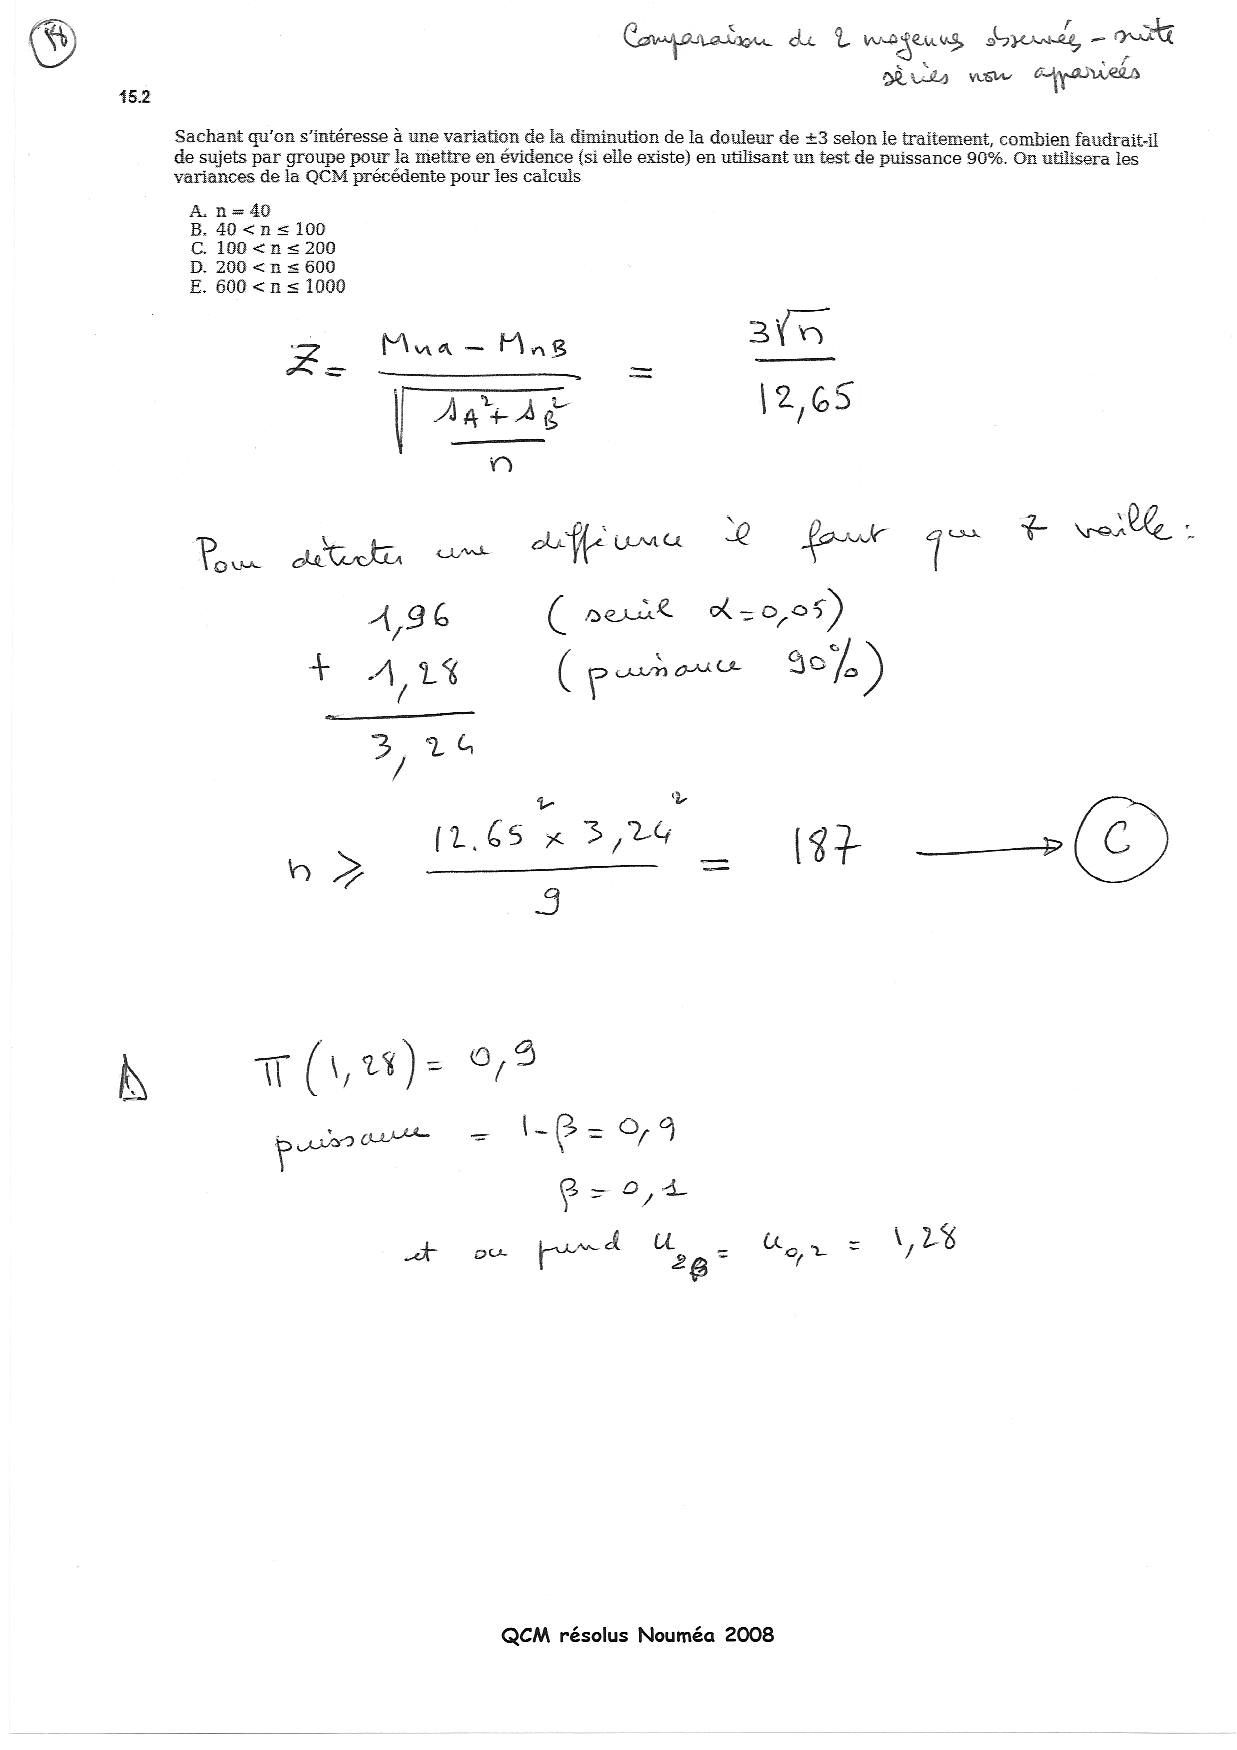 18
Comparaison de 2 moyennes observées - suite
séries non appariées
15.2
Sachant qu'on s'intéresse à une variation de la diminution de la douleur de ±3 selon le traitement, combien faudrait-il
de sujets par groupe pour la mettre en évidence (si elle existe) en utilisant un test de puissance 90%. On utilisera les
variances de la QCM précédente pour les calculs
A. n = 40
B. 40 < n ≤ 100
C. 100 < n ≤ 200
D. 200 < n ≤ 600
E. 600 < n ≤ 1000
Z = (MnA - MnB) / √((sA² + sB²) / n) = 3√n / 12,65
Pour détecter une différence il faut que z vaille :
1,96 (seuil α=0,05)
+ 1,28 (puissance 90%)
3,24
n ≥ (12.65² × 3,24²) / 9 = 187 → C
π(1,28) = 0,9
puissance = 1-β = 0,9
β = 0,1
et on prend u2β = u0,2 = 1,28
QCM résolus Nouméa 2008